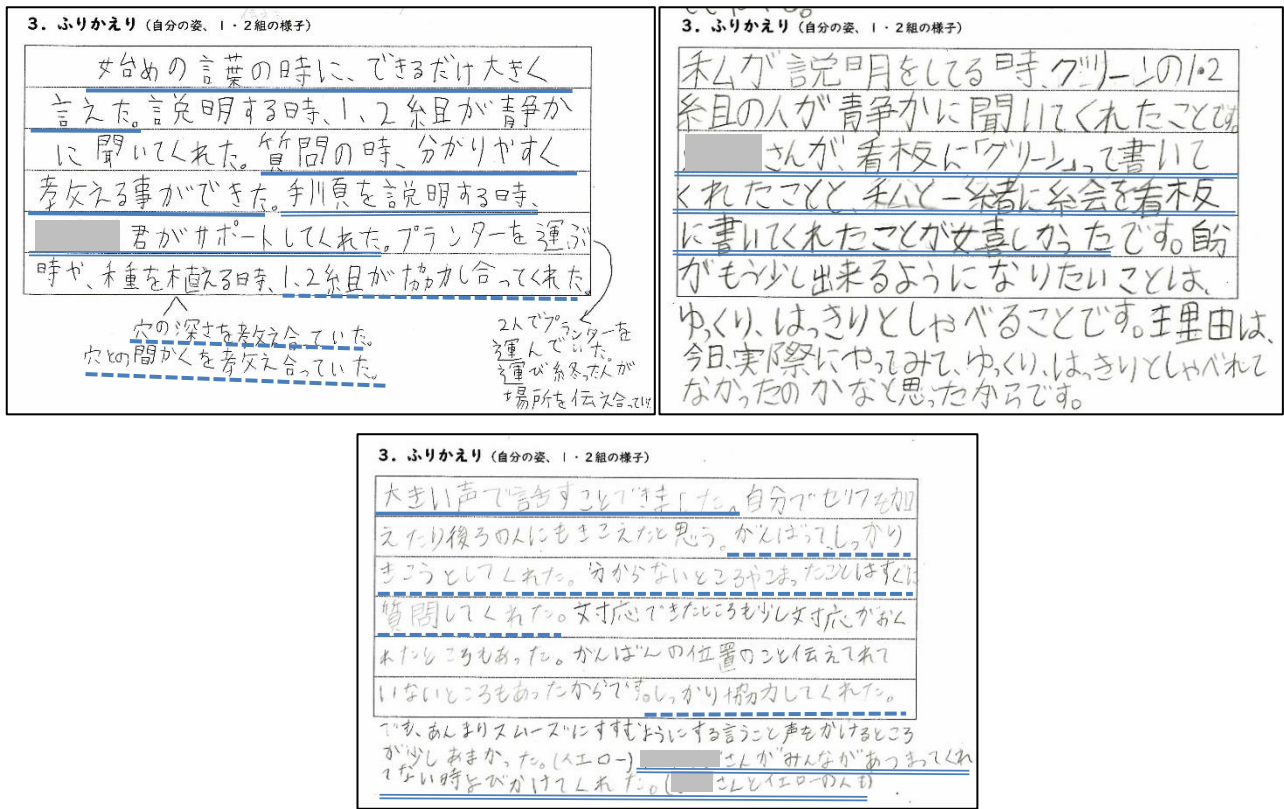 3．ふりかえり（自分の姿、1・2組の様子）
始めの言葉の時に、できるだけ大きく
言えた。説明する時、1、2組が静か
に聞いてくれた。質問の時、分かりやすく
教える事ができた。手順を説明する時、
君がサポートしてくれた。プランターを運ぶ
時や、種を植える時、1、2組が協力し合ってくれた。
穴の深さを教え合っていた。
穴との間かくを教え合っていた。
2人でプランターを
運んでいた。
運び終った人が
場所を伝え合ってい
3．ふりかえり（自分の姿、1・2組の様子）
私が説明をしてる時、グリーンの1・2
組の人が静かに聞いてくれたことです。
さんが、看板に「グリーン」って書いて
くれたことと、私と一緒に絵を看板
に書いてくれたことが嬉しかったです。自分
がもう少し出来るようになりたいことは、
ゆっくり、はっきりとしゃべることです。理由は、
今日、実際にやってみて、ゆっくり、はっきりとしゃべれて
なかったのかなと思ったからです。
3．ふりかえり（自分の姿、1・2組の様子）
大きい声で話すことできました。自分でセリフを加
えたり後ろの人にもきこえたと思う。がんばって、しっかり
きこうとしてくれた。分からないところやこまったことはすぐに
質問してくれた。対応できたところも少し対応がおく
れたところもあった。かんばんの位置のこと伝えてれて
いないところもあったからです。しっかり協力してくれた。
でも、あんまりスムーズにすすむようにする言うこと声をかけるところ
が少しあまかった。(イエロー) さんがみんながあつまってくれ
てない時よびかけてくれた。( さんとイエローの人も)